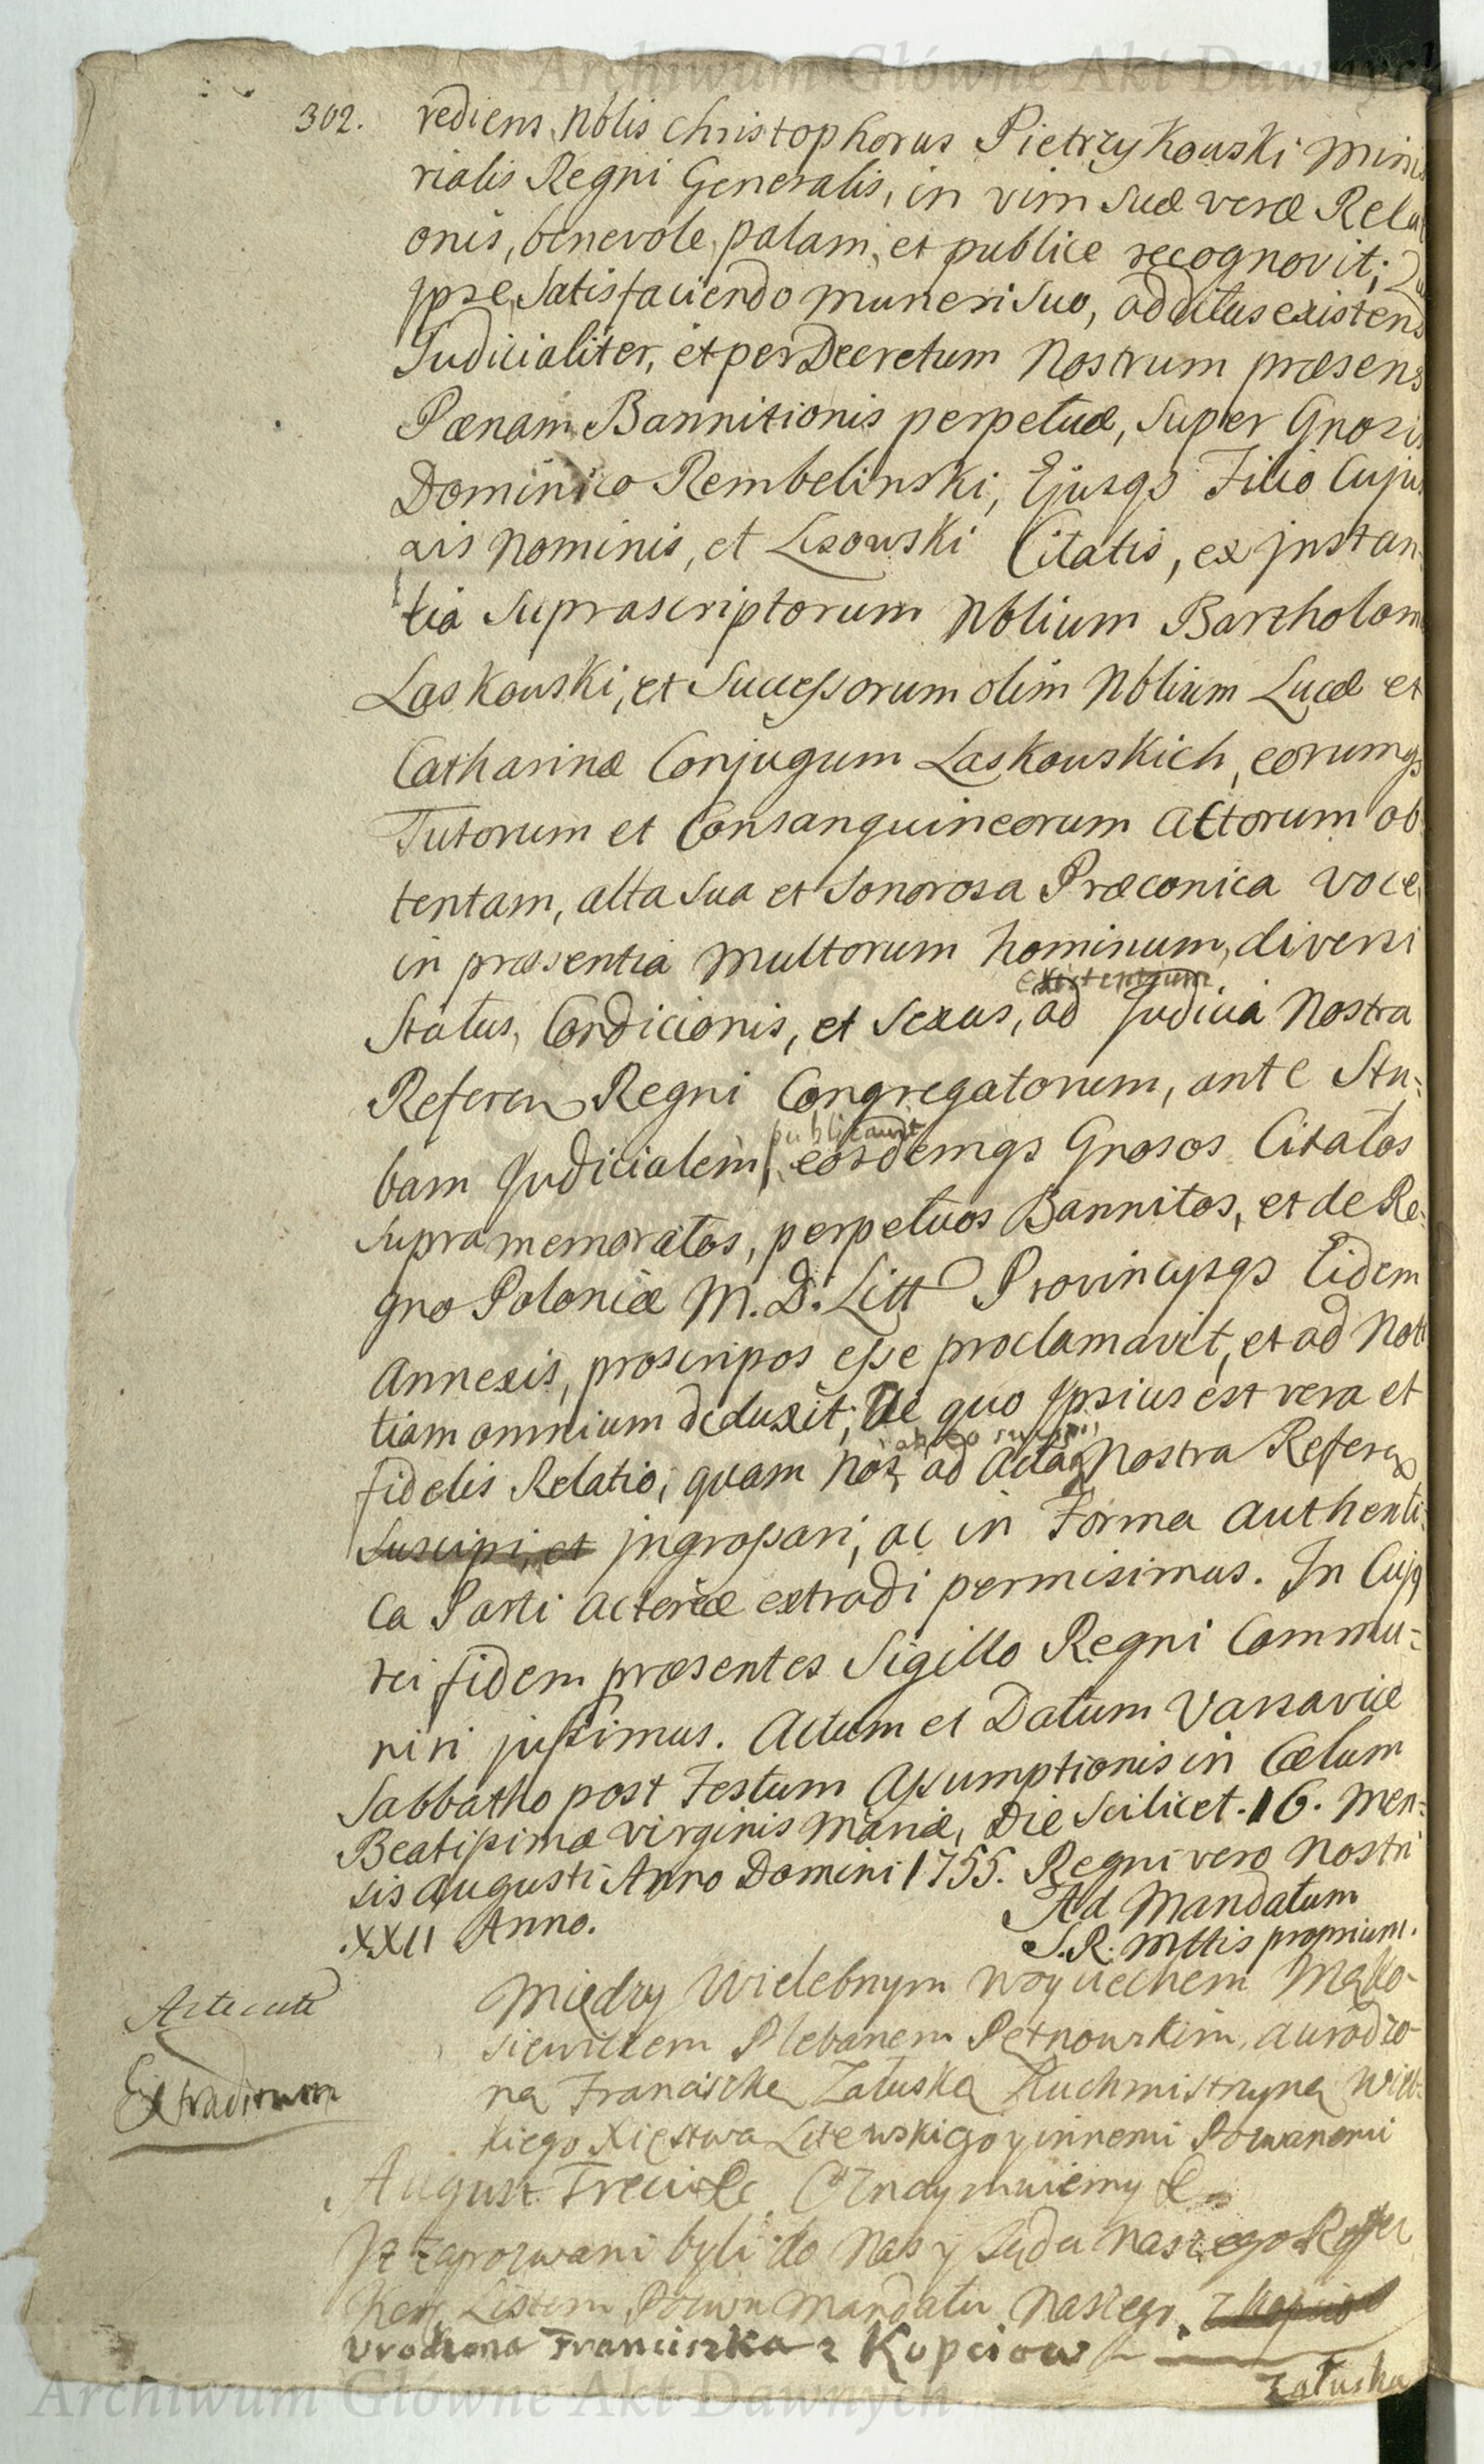 Archiwum Główne Akt Dawnych
302.
rediens, Nblis Christophorus Pietrzykowski Minis
rialis Regni Generalis, in vim suæ veræ Rela
onis, benevole, palam, et publice recognovit;
Ipse, satisfaciendo muneri suo, additus existens
Judicialiter, et per Decretum Nostrum præsens
Pænam Bannitionis perpetuæ, super Gnosis
Dominico Rembelinski, Ejusqs Filio Cujus
vis nominis, et Lisowski Citatis, ex Instan
tia suprascriptorum Nblium Bartholom
Laskowski, et Successorum olim Nblium Lucæ et
Catharinæ Conjugum Laskowskich, eorumqs
Tutorum et Consanguineorum Actorum ob
tentam, alta sua et sonorosa Præconica voce
in præsentia multorum hominum, diversi
existentium
Status, Condicionis, et Sexus, ad Judicia Nostra
Referen Regni Congregatorum, ante Stu-
publicavit
bam Judicialem, eosdemqs Gnosos Citatos
supra memoratos, perpetuos Bannitos, et de Re-
gno Poloniæ M. D. Litt Provincijsqs Eidem
Annexis, proscripos esse proclamavit, et ad Noti
tiam omnium deduxit, De quo Ipsius est vera et
ab eo suscipi
fidelis Relatio, quam Nos, ad Acta Nostra Referen
suscipi, et ingrossari, ac in Forma authenti-
ca Parti Actoreæ extradi permisimus. In Cujq
rei fidem præsentes Sigillo Regni Commu-
niri jussimus. Actum et Datum Varsaviæ
Sabbatho post Festum Assumptionis in Cælum
Beatissimæ Virginis Mariæ, Die scilicet. 16. Men-
sis Augusti Anno Domini 1755. Regni vero Nostri
XXII Anno.
Ad Mandatum
S. R. Mttis proprium.
Między Wielebnym Woyciechem Mako-
siewiczem Plebanem Pętkowskim, a urodzo-
na Franciszką Załuską Kuchmistrzyną Wiel-
kiego Xięstwa Litewskiego y innemi Pozwanemi
Extradinum
August Trzeci &c Oznaymuiemy &c
Iż zapozwani byli do Nas y Sądu Naszego Refer
Kor Listem Pozwu Mandatu Naszego.
Urodzona Franciszka z Kopciow
Załuska
Archiwum Główne Akt Dawnych